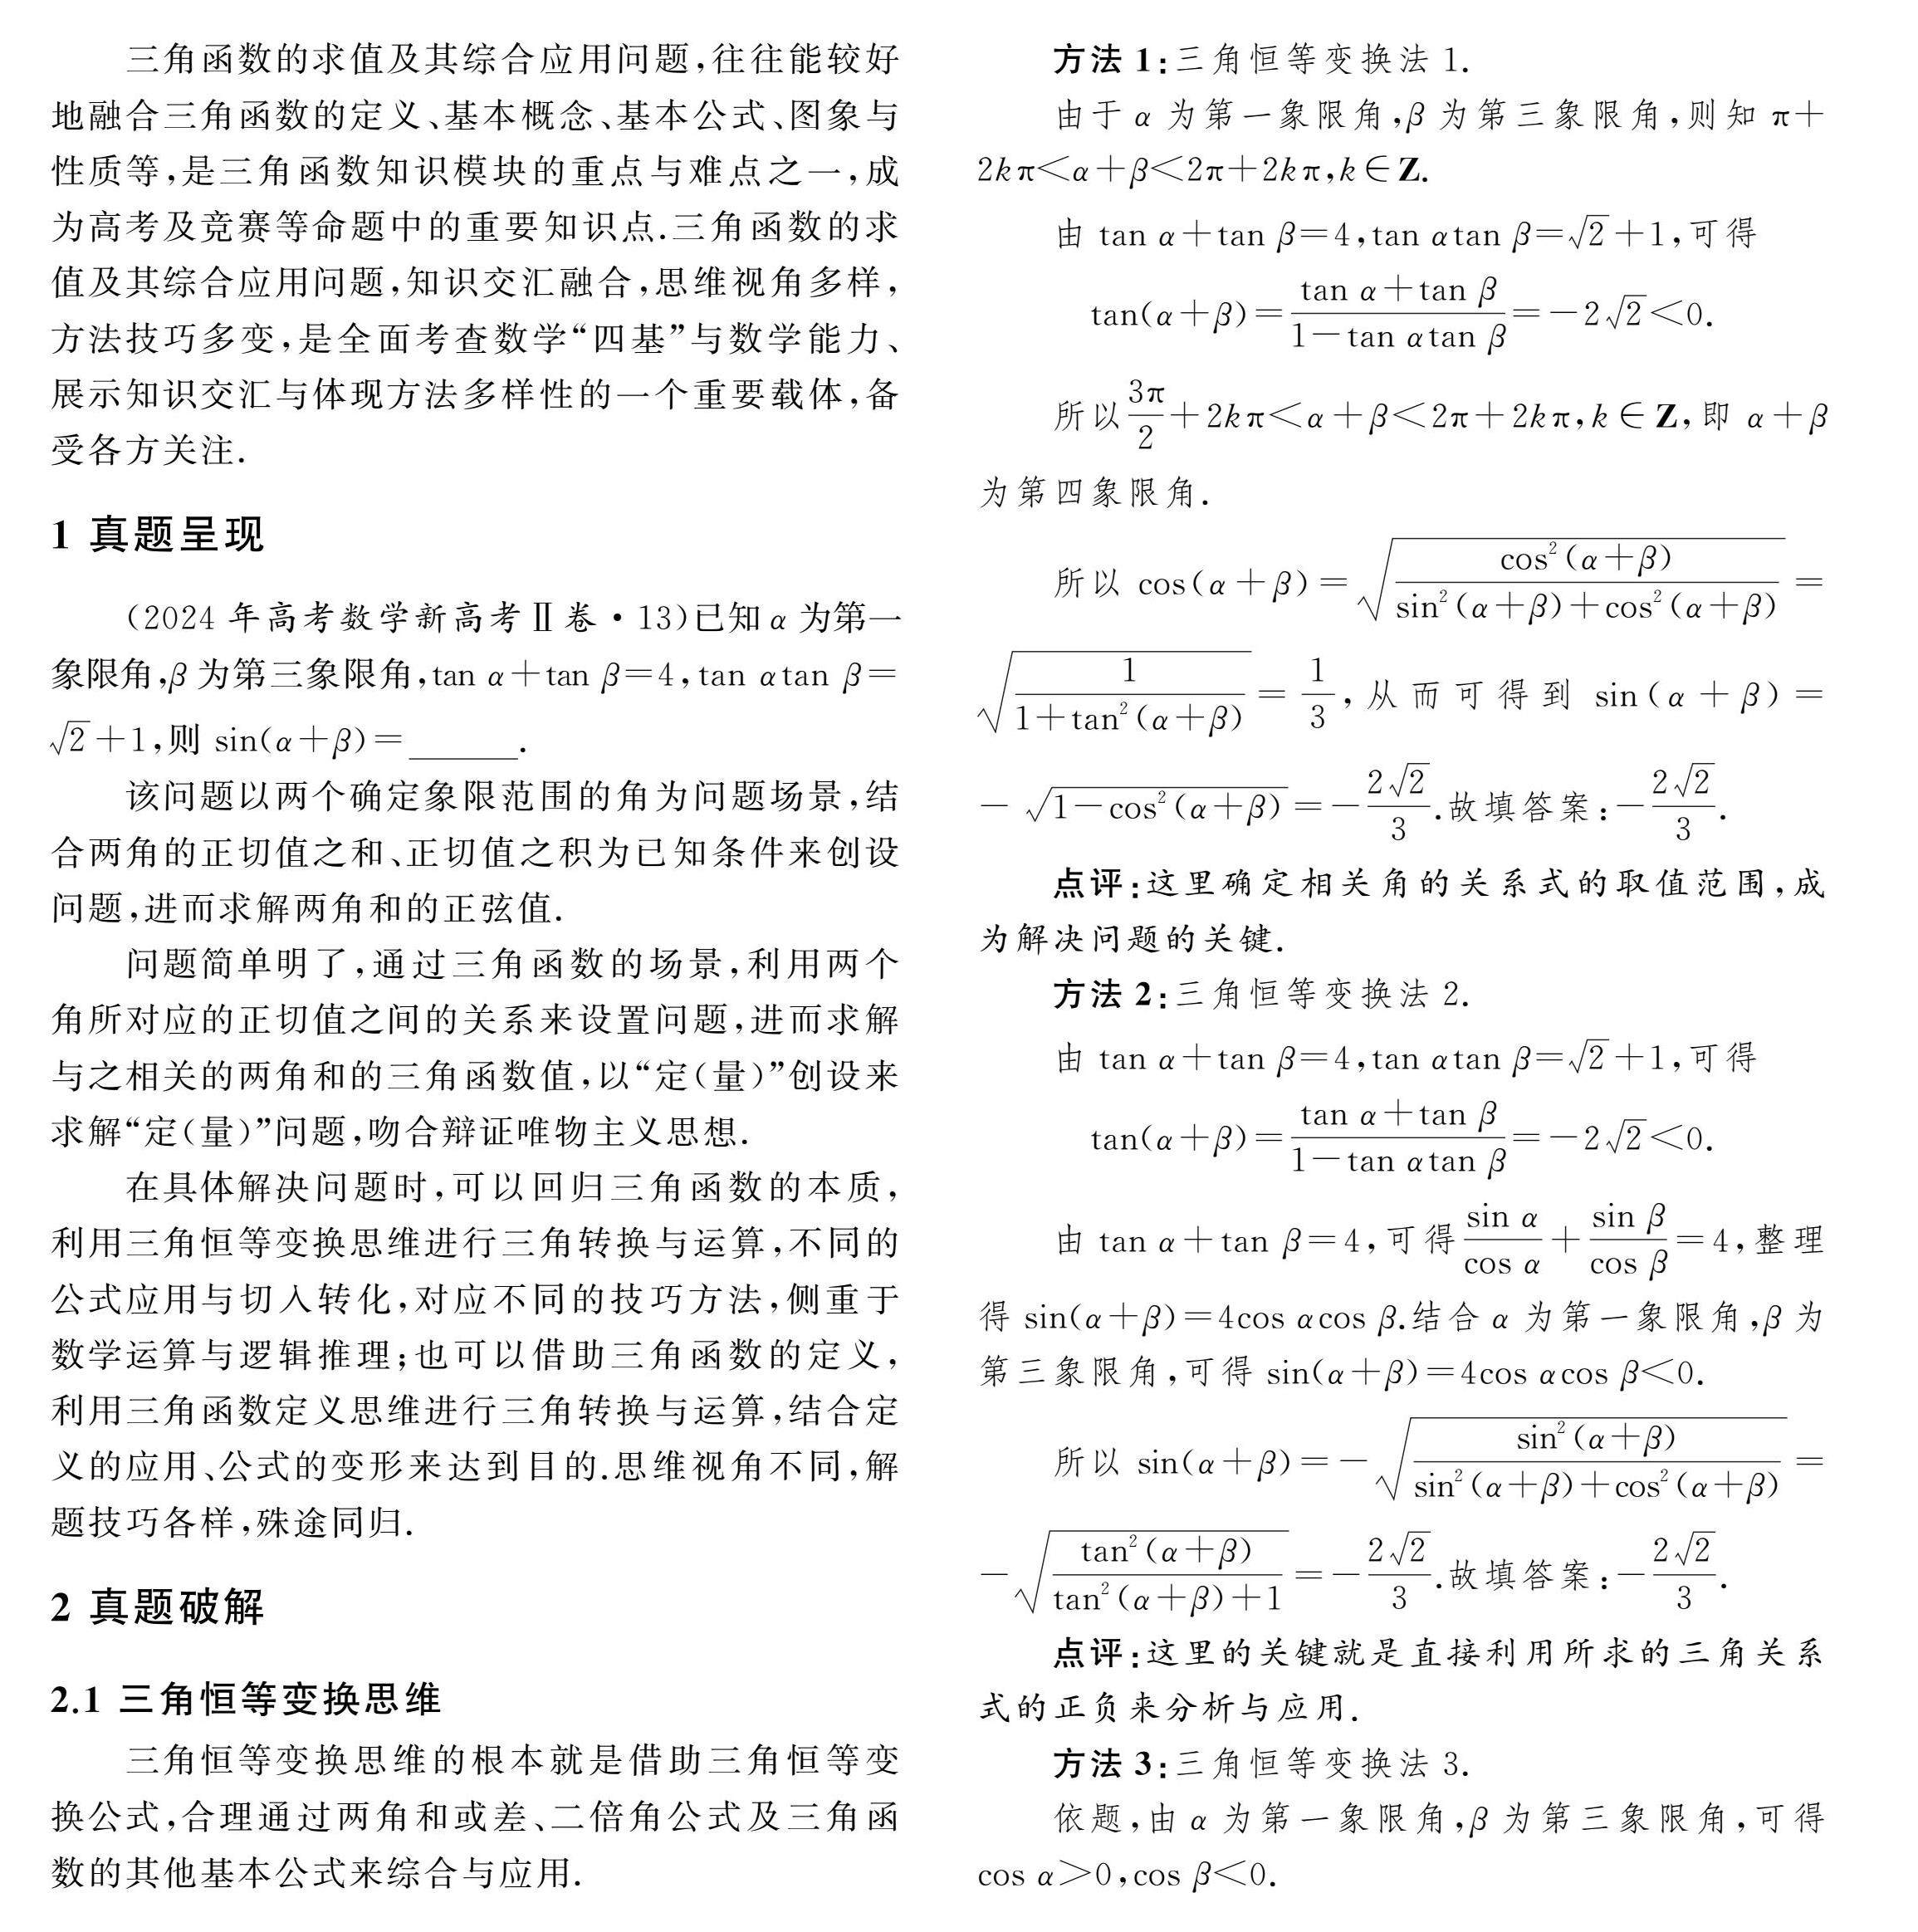 三角函数的求值及其综合应用问题,往往能较好
地融合三角函数的定义、基本概念、基本公式、图象与
性质等,是三角函数知识模块的重点与难点之一,成
为高考及竞赛等命题中的重要知识点.三角函数的求
值及其综合应用问题,知识交汇融合,思维视角多样,
方法技巧多变,是全面考查数学“四基”与数学能力、
展示知识交汇与体现方法多样性的一个重要载体,备
受各方关注.
1 真题呈现
(2024 年高考数学新高考Ⅱ卷·13)已知 α 为第一
象限角,β 为第三象限角,tan α+tan β=4,tan αtan β=
√2+1,则 sin(α+β)=______.
该问题以两个确定象限范围的角为问题场景,结
合两角的正切值之和、正切值之积为已知条件来创设
问题,进而求解两角和的正弦值.
问题简单明了,通过三角函数的场景,利用两个
角所对应的正切值之间的关系来设置问题,进而求解
与之相关的两角和的三角函数值,以“定(量)”创设来
求解“定(量)”问题,吻合辩证唯物主义思想.
在具体解决问题时,可以回归三角函数的本质,
利用三角恒等变换思维进行三角转换与运算,不同的
公式应用与切入转化,对应不同的技巧方法,侧重于
数学运算与逻辑推理;也可以借助三角函数的定义,
利用三角函数定义思维进行三角转换与运算,结合定
义的应用、公式的变形来达到目的.思维视角不同,解
题技巧各样,殊途同归.
2 真题破解
2.1 三角恒等变换思维
三角恒等变换思维的根本就是借助三角恒等变
换公式,合理通过两角和或差、二倍角公式及三角函
数的其他基本公式来综合与应用.
方法 1:三角恒等变换法 1.
由于 α 为第一象限角,β 为第三象限角,则知 π+
2kπ<α+β<2π+2kπ,k∈Z.
由 tan α+tan β=4,tan αtan β=√2+1,可得
tan(α+β)=(tan α+tan β)/(1-tan αtan β)=-2√2<0.
所以 3π/2+2kπ<α+β<2π+2kπ,k∈Z,即 α+β
为第四象限角.
所以 cos(α+β)=√(cos²(α+β)/(sin²(α+β)+cos²(α+β)))=
√(1/(1+tan²(α+β)))=1/3,从而可得到 sin(α+β)=
-√(1-cos²(α+β))=-2√2/3.故填答案:-2√2/3.
点评:这里确定相关角的关系式的取值范围,成
为解决问题的关键.
方法 2:三角恒等变换法 2.
由 tan α+tan β=4,tan αtan β=√2+1,可得
tan(α+β)=(tan α+tan β)/(1-tan αtan β)=-2√2<0.
由 tan α+tan β=4,可得 sin α/cos α+sin β/cos β=4,整理
得 sin(α+β)=4cos αcos β.结合 α 为第一象限角,β 为
第三象限角,可得 sin(α+β)=4cos αcos β<0.
所以 sin(α+β)=-√(sin²(α+β)/(sin²(α+β)+cos²(α+β)))=
-√(tan²(α+β)/(tan²(α+β)+1))=-2√2/3.故填答案:-2√2/3.
点评:这里的关键就是直接利用所求的三角关系
式的正负来分析与应用.
方法 3:三角恒等变换法 3.
依题,由 α 为第一象限角,β 为第三象限角,可得
cos α>0,cos β<0.